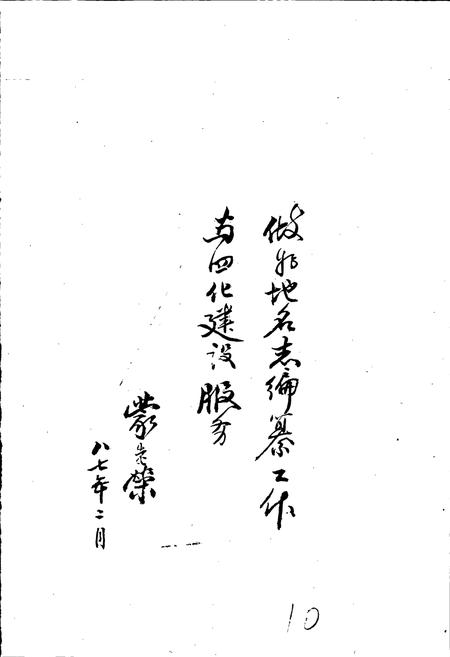 做好地名志编纂工作
为四化建设服务
蒙生荣
八七年二月
10